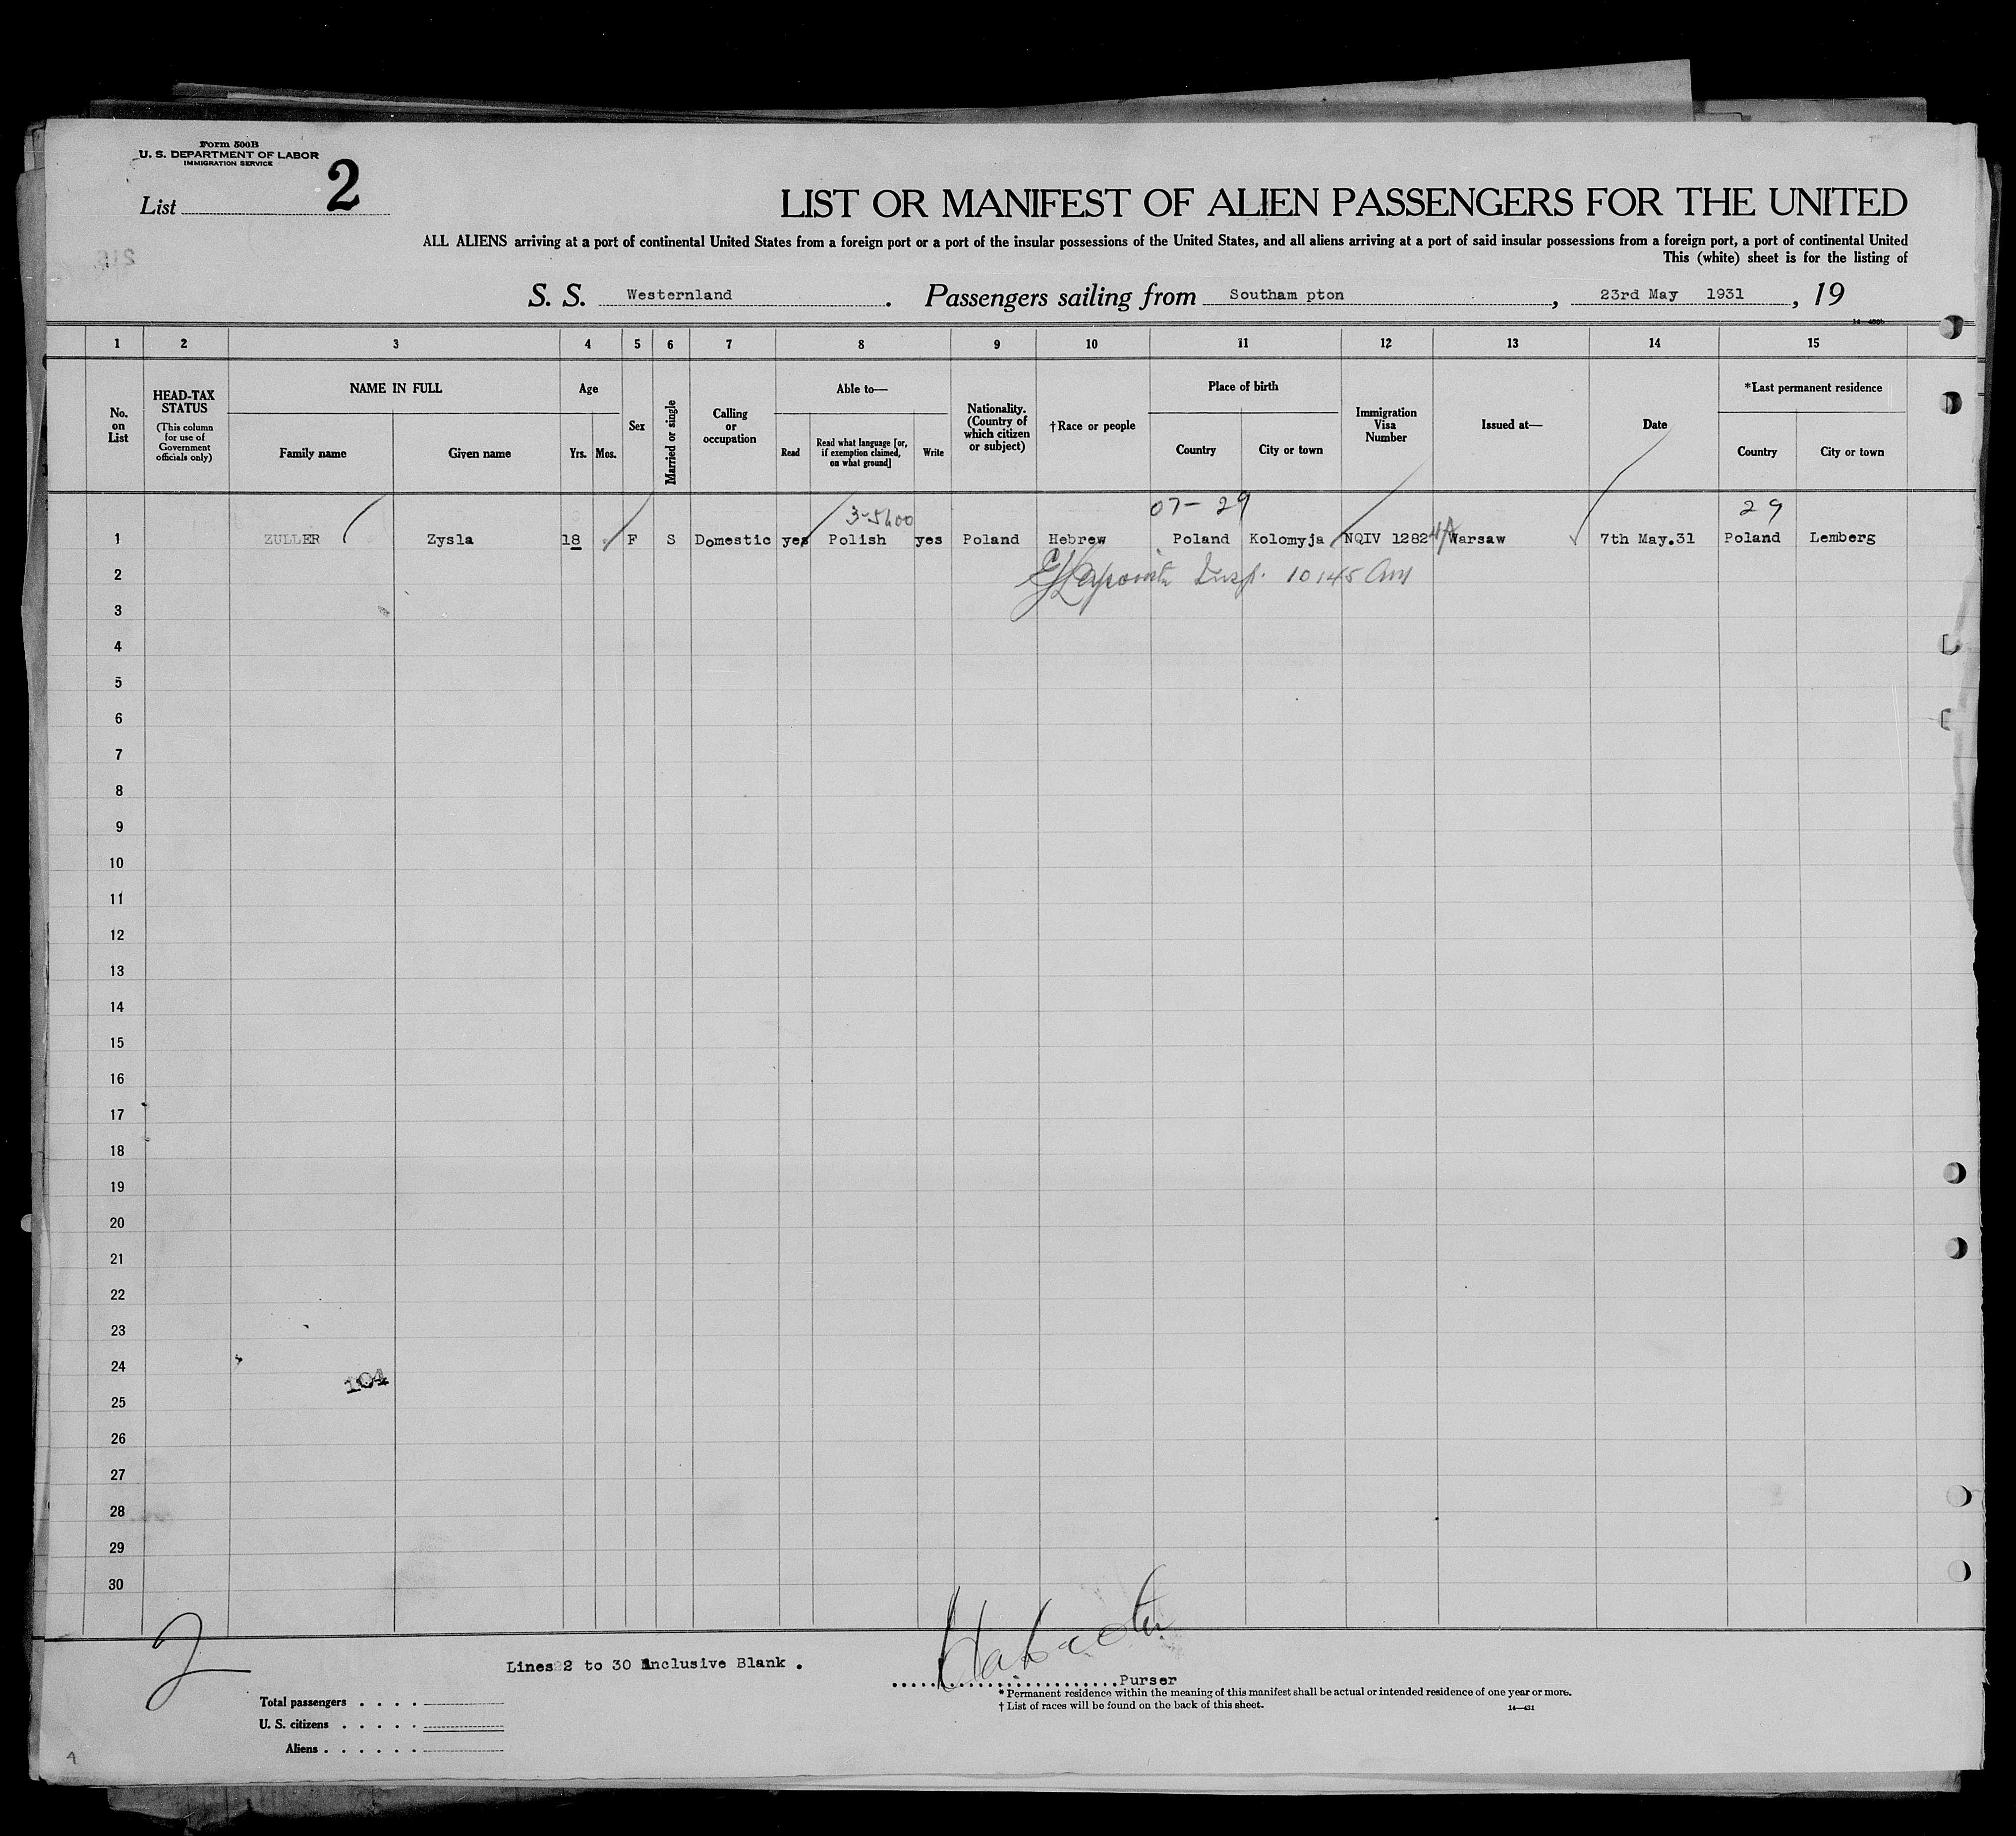 Form 500B
U. S. DEPARTMENT OF LABOR
IMMIGRATION SERVICE
List 2
LIST OR MANIFEST OF ALIEN PASSENGERS FOR THE UNITED
ALL ALIENS arriving at a port of continental United States from a foreign port or a port of the insular possessions of the United States, and all aliens arriving at a port of said insular possessions from a foreign port, a port of continental United
This (white) sheet is for the listing of
S. S. Westernland . Passengers sailing from Southam pton , 23rd May 1931 , 19
1 2 3 4 5 6 7 8 9 10 11 12 13 14 15
No. on List
HEAD-TAX STATUS
(This column for use of Government officials only)
NAME IN FULL
Family name
Given name
Age
Yrs. Mos.
Sex
Married or single
Calling or occupation
Able to—
Read
Read what language [or, if exemption claimed, on what ground]
Write
Nationality. (Country of which citizen or subject)
†Race or people
Place of birth
Country
City or town
Immigration Visa Number
Issued at—
Date
*Last permanent residence
Country
City or town
07- 29 29
1 ZULLER Zysla 18 F S Domestic yes Polish yes Poland Hebrew Poland Kolomyja NQIV 1282 Warsaw 7th May.31 Poland Lemberg
2 Insp. 10 145 Am
3
4
5
6
7
8
9
10
11
12
13
14
15
16
17
18
19
20
21
22
23
24
104
25
26
27
28
29
30
2
Lines 2 to 30 Inclusive Blank .
Purser
Total passengers . . . .
U. S. citizens . . . . .
Aliens . . . . . .
* Permanent residence within the meaning of this manifest shall be actual or intended residence of one year or more.
† List of races will be found on the back of this sheet.
14—431